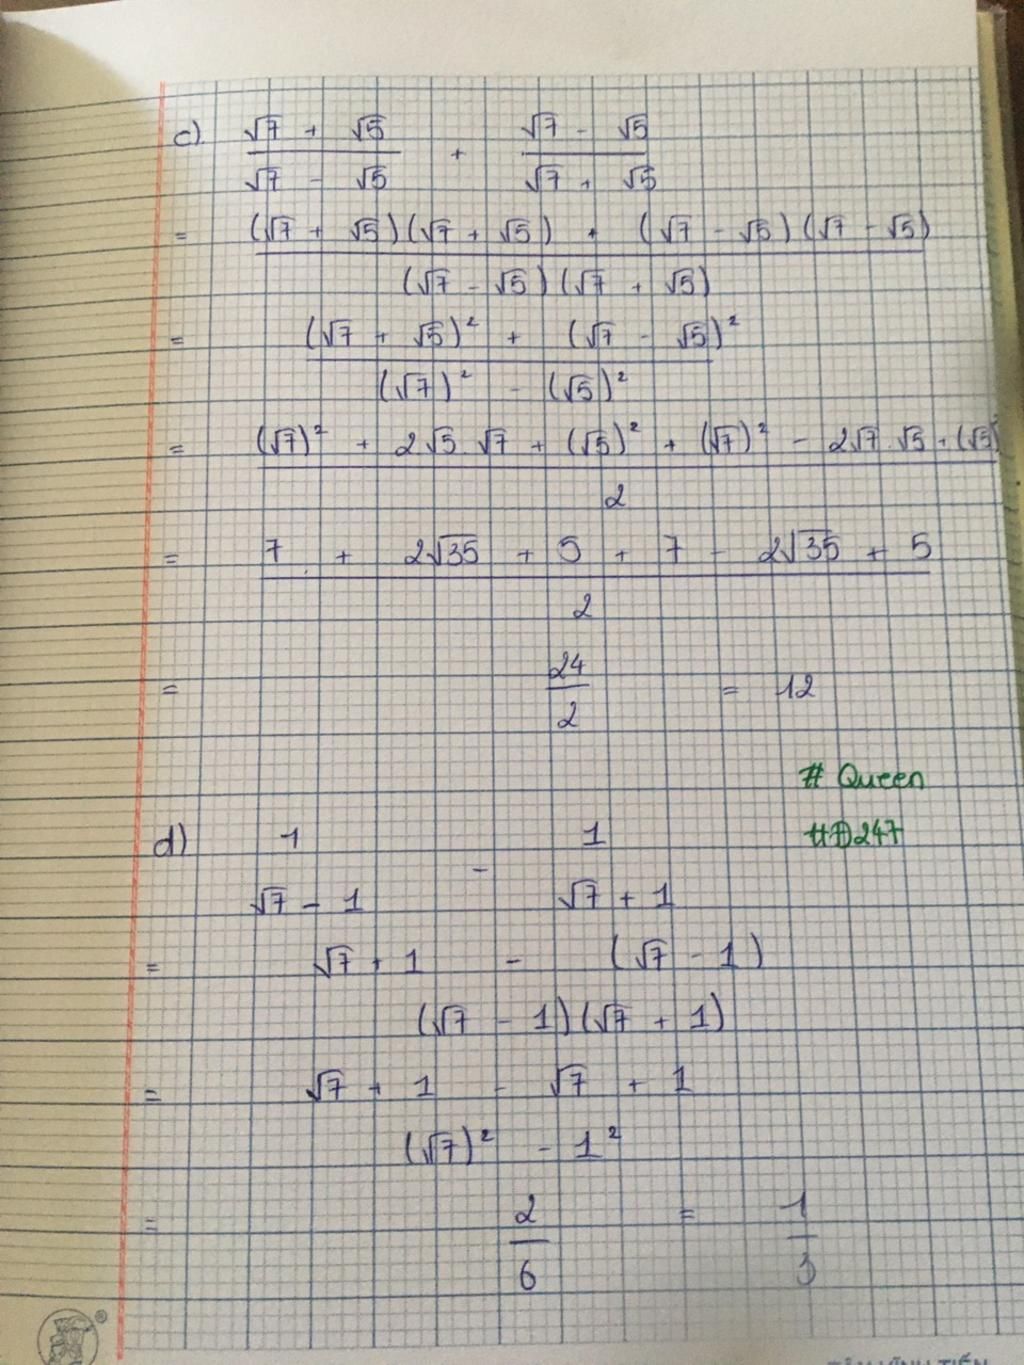 c) √7 + √5 + √7 - √5
√7 - √5 √7 + √5
= (√7 + √5)(√7 + √5) + (√7 - √5)(√7 - √5)
(√7 - √5)(√7 + √5)
= (√7 + √5)² + (√7 - √5)²
(√7)² - (√5)²
= (√7)² + 2√5.√7 + (√5)² + (√7)² - 2√7.√5 + (√5)
2
= 7 + 2√35 + 5 + 7 - 2√35 + 5
2
= 24 = 12
2
# Queen
#D247
d) 1 - 1
√7 - 1 √7 + 1
= √7 + 1 - (√7 - 1)
(√7 - 1)(√7 + 1)
= √7 + 1 - √7 + 1
(√7)² - 1²
= 2 = 1
6 3